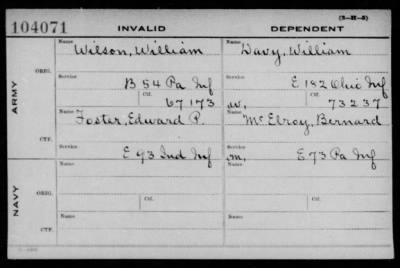 (3-H-5)
104071 INVALID DEPENDENT
Name Name
Wilson, William Davy, William
ORIG.
Service Service
B 54 Pa Inf E 182 Ohio Inf
Ctf. Ctf.
67173 w. 73237
ARMY
Name Name
Foster, Edward P. McElroy, Bernard
CURR.
Service Service
E 93 Ind Inf m. E 73 Pa Inf
Name Name
ORIG.
Service Service
Ctf. Ctf.
NAVY
Name Name
CURR.